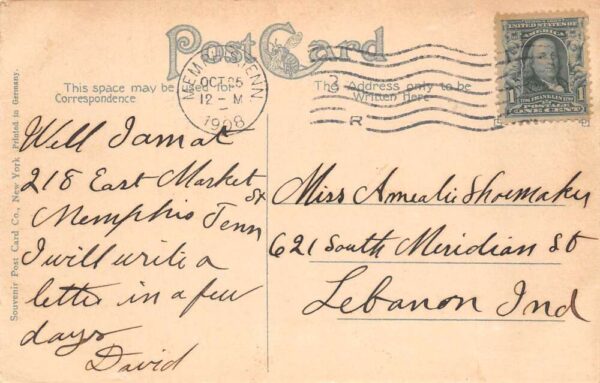 Post Card
This space may be used for
Correspondence
The Address only to be
Written Here
MEMPHIS, TENN
OCT 25
12 - M
1908
R
AMERICA
FRANKLIN
1 1
Well I am at
218 East Market St
Memphis Tenn
I will write a
letter in a few
days
David
Miss Amealie Shoemaker
621 South Meridian St
Lebanon Ind
Souvenir Post Card Co., New York Printed in Germany.